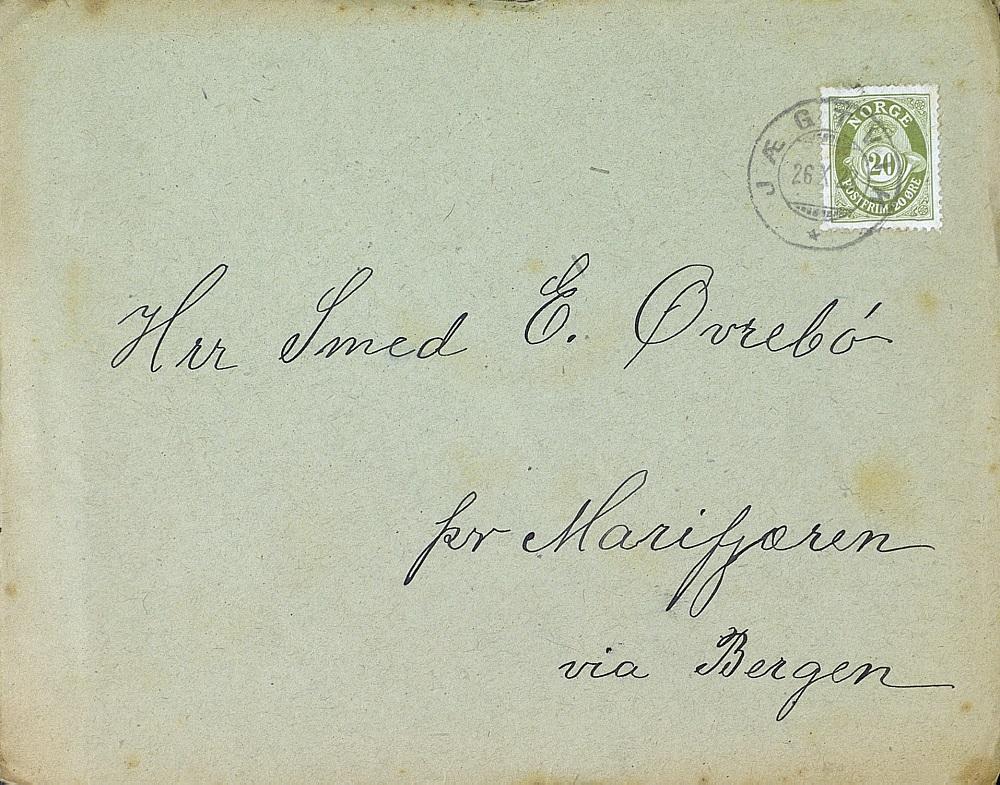 NORGE
20
POSTFRIM. 20 ØRE
26 X
Hrr Smed E. Øvrebó
pr Marifjæren
via Bergen